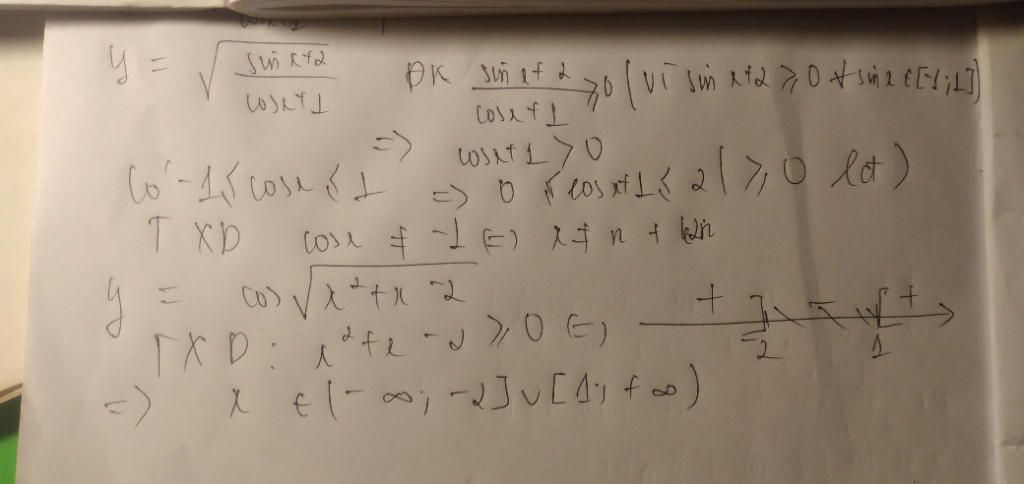 y = √((sin x+2)/(cosx+1)) ĐK (sin x+2)/(cosx+1) ≥0 (vì sin x+2 ≥ 0 ∀ sinx ∈[-1;1])
=> cosx+1 > 0
Có -1 ≤ cosx ≤ 1 => 0 ≤ cosx+1 ≤ 2 (≥ 0 lđ)
TXD cosx ≠ -1 (=) x ≠ π + k2π
y = cos √(x²+x-2)
TXD: x²+x-2 ≥ 0 (=) + ] - [ + -2 1
=> x ∈ (-∞; -2] ∪ [1; +∞)